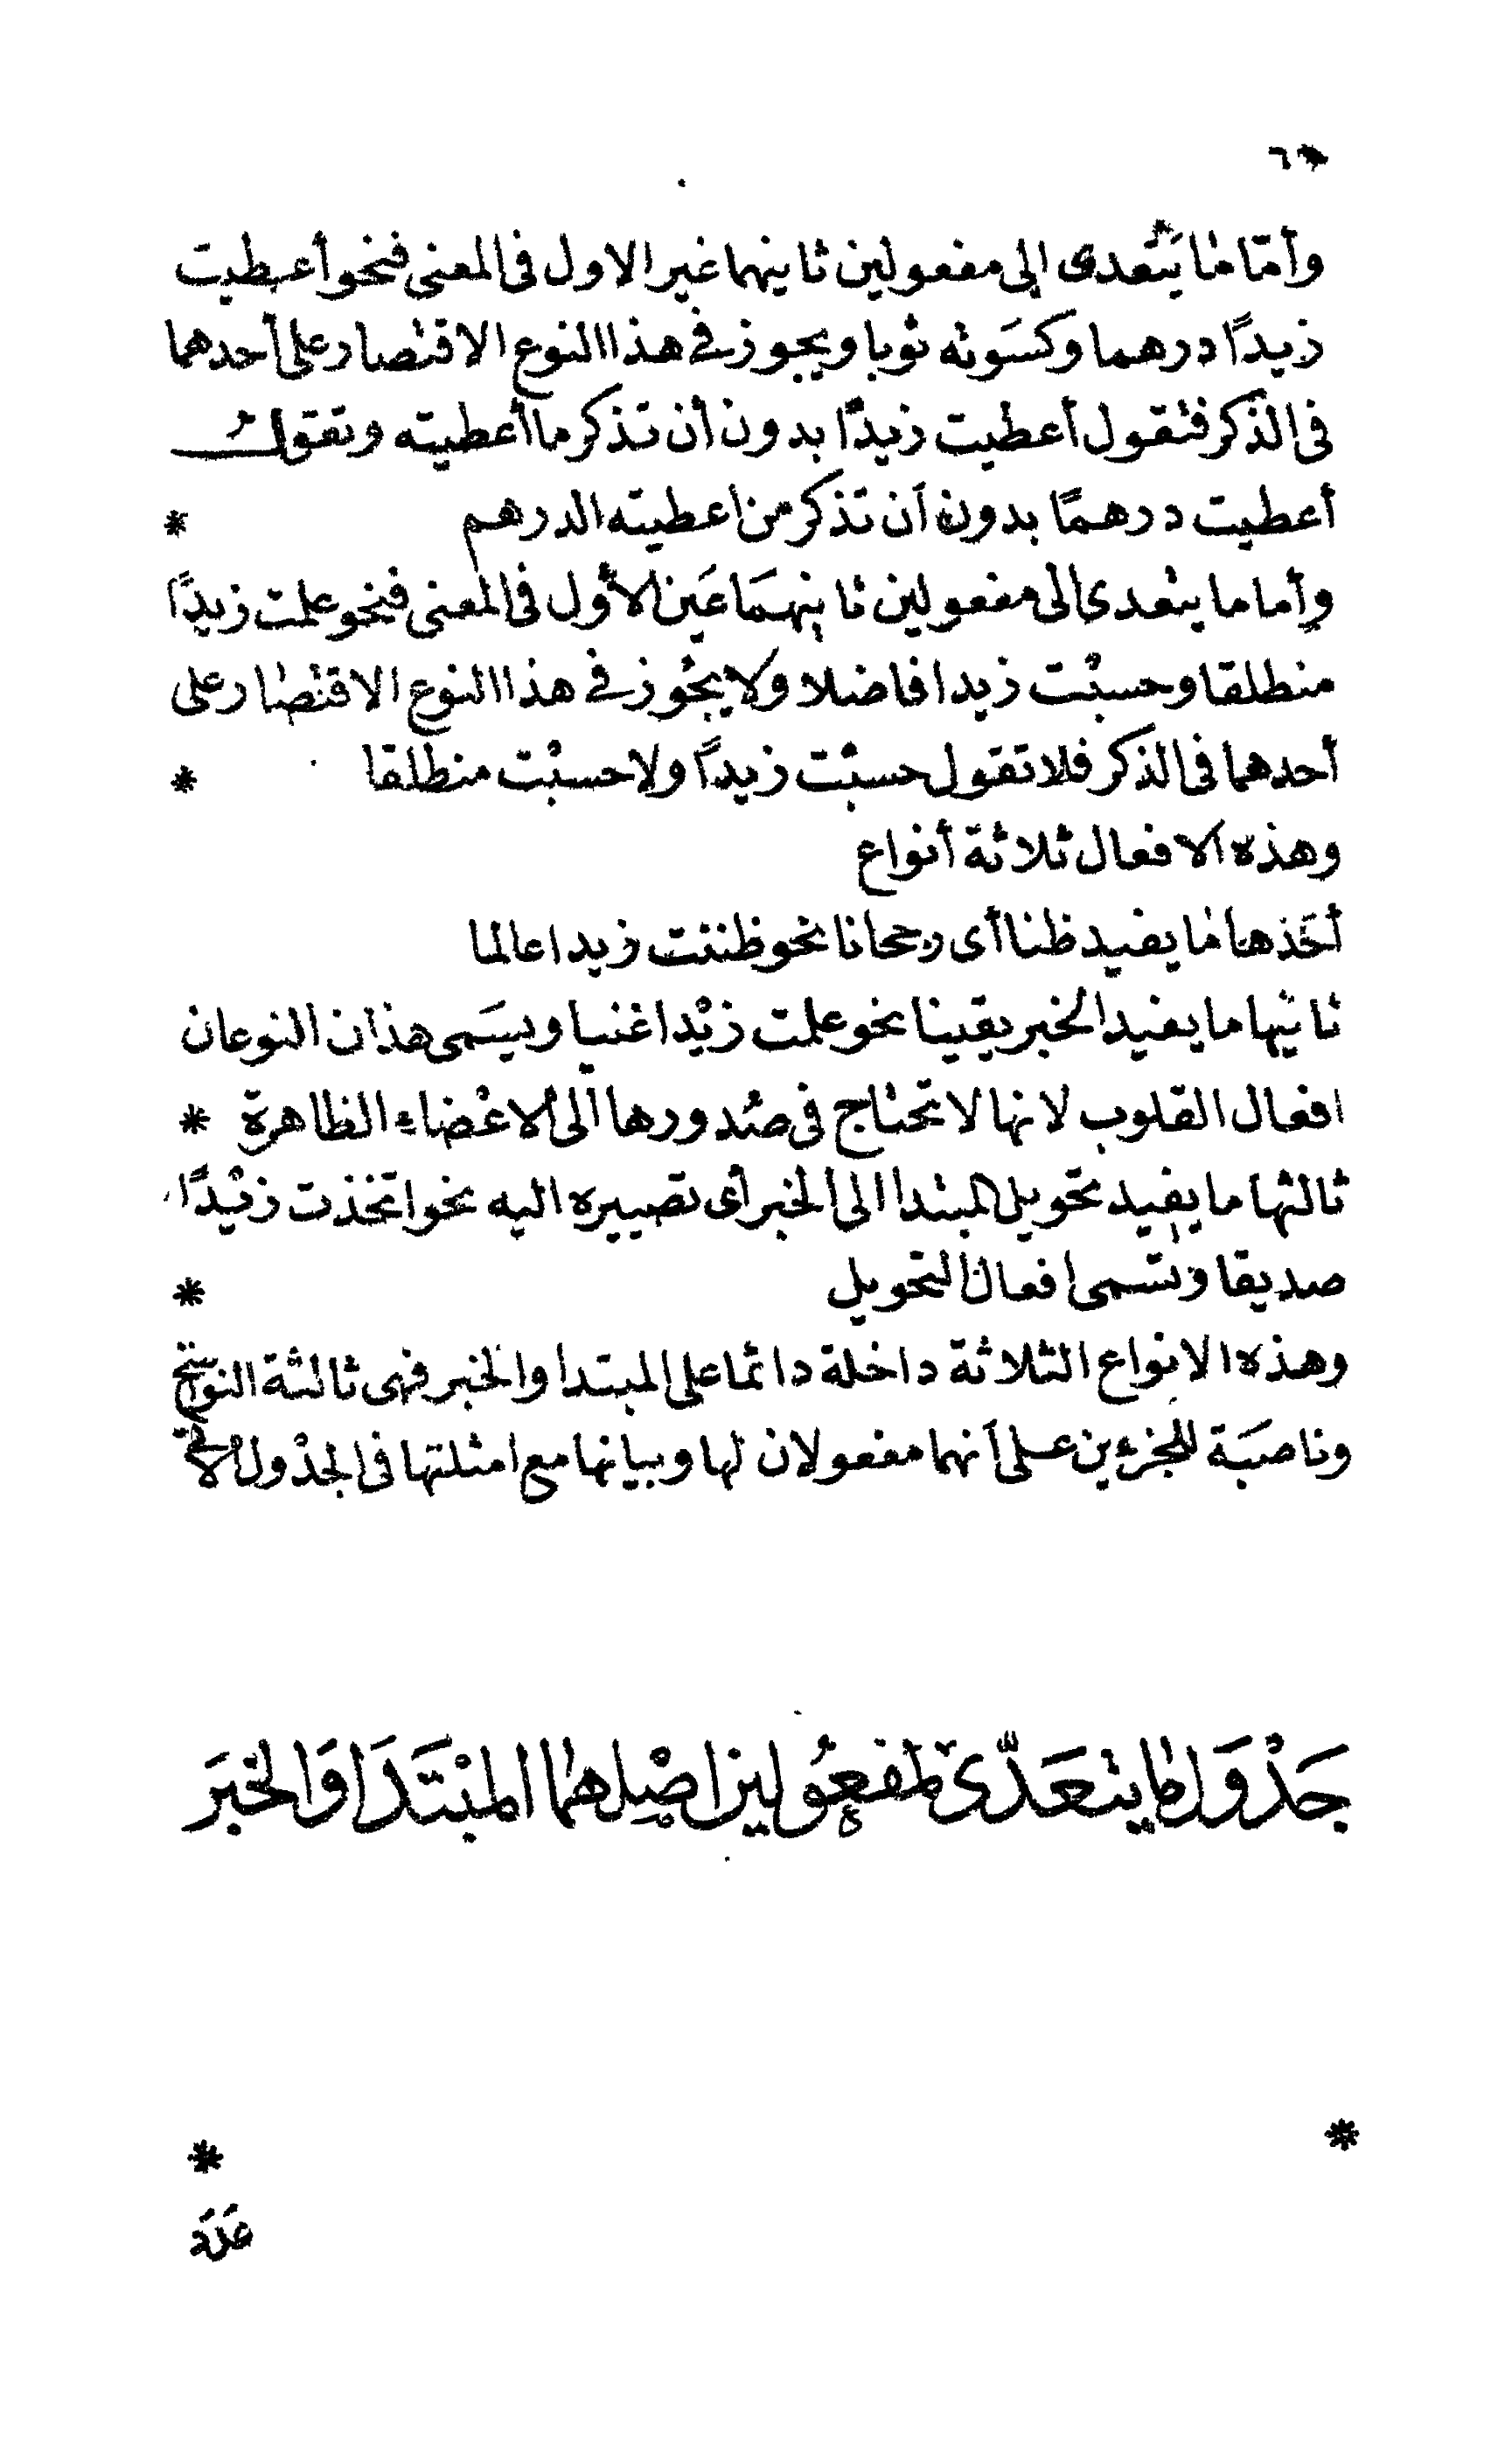 وأمّا ما يَتعدى إلى مفعولين ثانيهما غير الاول فى المعنى فنحو أعطيت
زيدًا درهما وكسَوته ثوبا ويجوز فى هذا النوع الاقتصار على أحدهما
فى الذكر فتقول أعطيت زيدًا بدون أن تذكر ما أعطيته وتقول
أعطيت درهمًا بدون أن تذكر من اعطيته الدرهم *
وأما ما يتعدى الى مفعولين ثانيهمَا عَين الأول فى المعنى فنحو علمت زيدًا
منطلقا وحسبْت زيدا فاضلا ولا يجُوز فى هذا النوع الاقتصار على
أحدهما فى الذكر فلا تقول حسبْت زيدًا ولا حسبْت منطلقا *
وهذه الافعال ثلاثة أنواع
أحَدها ما يفيد ظنا أى رجحانا نحو ظننت زيدا عالما
ثانيها ما يفيد الخبر يقينا نحو علمت زيْدا غنيا ويسَمى هذان النوعان
افعال القلوب لانها لا تحتاج فى صُدورها الى الاعْضاء الظاهرة *
ثالثها ما يفيد تحويل المبتدا الى الخبر أى تصييره اليه نحو اتخذت زيْدًا
صديقا وتسمى افعال التحويل *
وهذه الانواع الثلاثة داخلة دائما على المبتدا والخبر فهى ثالثة النواسخ
وناصبَة للجزءين على أنهما مفعولان لها وبيانها مع امثلتها فى الجدْول الآتى
جَدْوَل ما يتعَدّى لمفعُولين اصْلهما المبْتَدَا وَالخبَر
* *
عَدَد